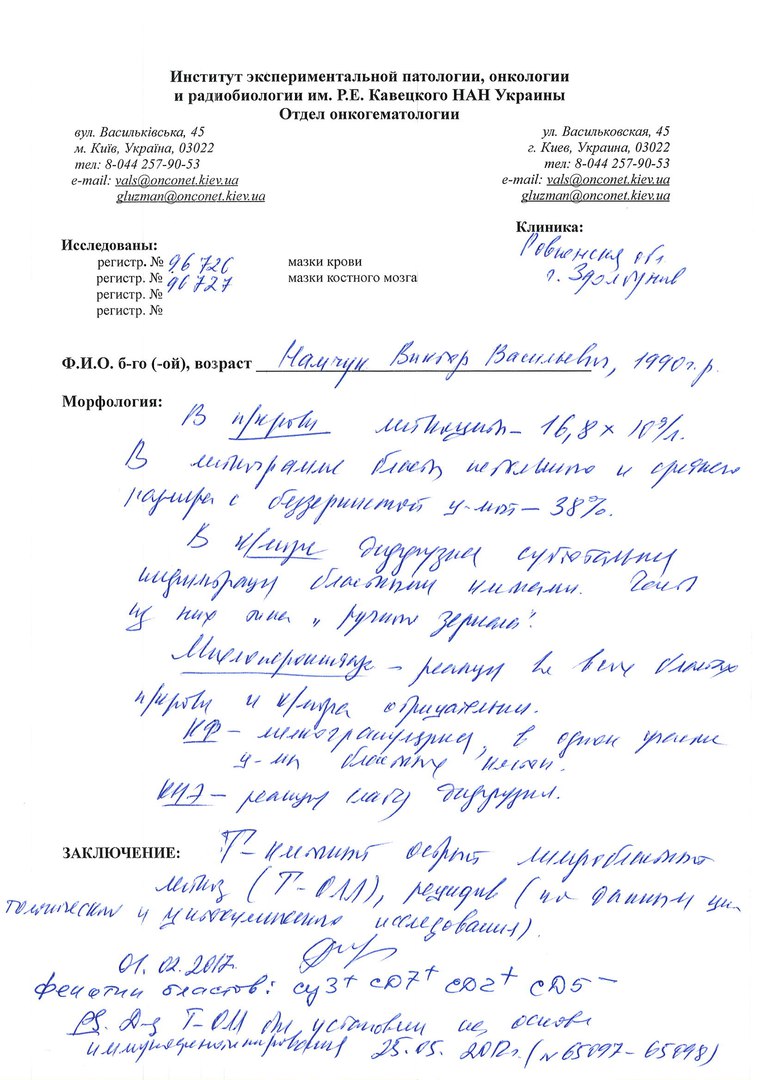 Институт экспериментальной патологии, онкологии
и радиобиологии им. Р.Е. Кавецкого НАН Украины
Отдел онкогематологии
вул. Васильківська, 45
м. Київ, Україна, 03022
тел: 8-044 257-90-53
e-mail: vals@onconet.kiev.ua
gluzman@onconet.kiev.ua
ул. Васильковская, 45
г. Киев, Украина, 03022
тел: 8-044 257-90-53
e-mail: vals@onconet.kiev.ua
gluzman@onconet.kiev.ua
Клиника:
Ровненская обл
г. Здолбунов
Исследованы:
регистр. № 96 726 мазки крови
регистр. № 96 727 мазки костного мозга
регистр. №
регистр. №
Ф.И.О. б-го (-ой), возраст Намчук Виктор Васильевич, 1990 г.р.
Морфология:
В п/крови лейкоциты – 16,8 × 10⁹/л.
В бласты и среднего
размера с беззернистой ц-мой – 38%.
В к/мозге диффузная субтотальная
инфильтрация бластными клетками. Часть
из них типа "ручного зеркала".
Миелопероксидаза – реакция во всех бластах
п/крови и к/мозга отрицательная.
КФ – в одном участке
ц-мы бластных клеток.
– реакция слабо диффузная.
ЗАКЛЮЧЕНЕ: Т-клеточный острый лимфобластный
лейкоз (Т-ОЛЛ), рецидив (по данным ци-
тологического и цитохимического исследования).
01.02.2017.
Фенотип бластов: cy3⁺ CD7⁺ CD2⁺ CD5⁻
Д-з Т-ОЛЛ был установлен на основе
иммунофенотипирования 25.05.2012г. (№65097–65098)